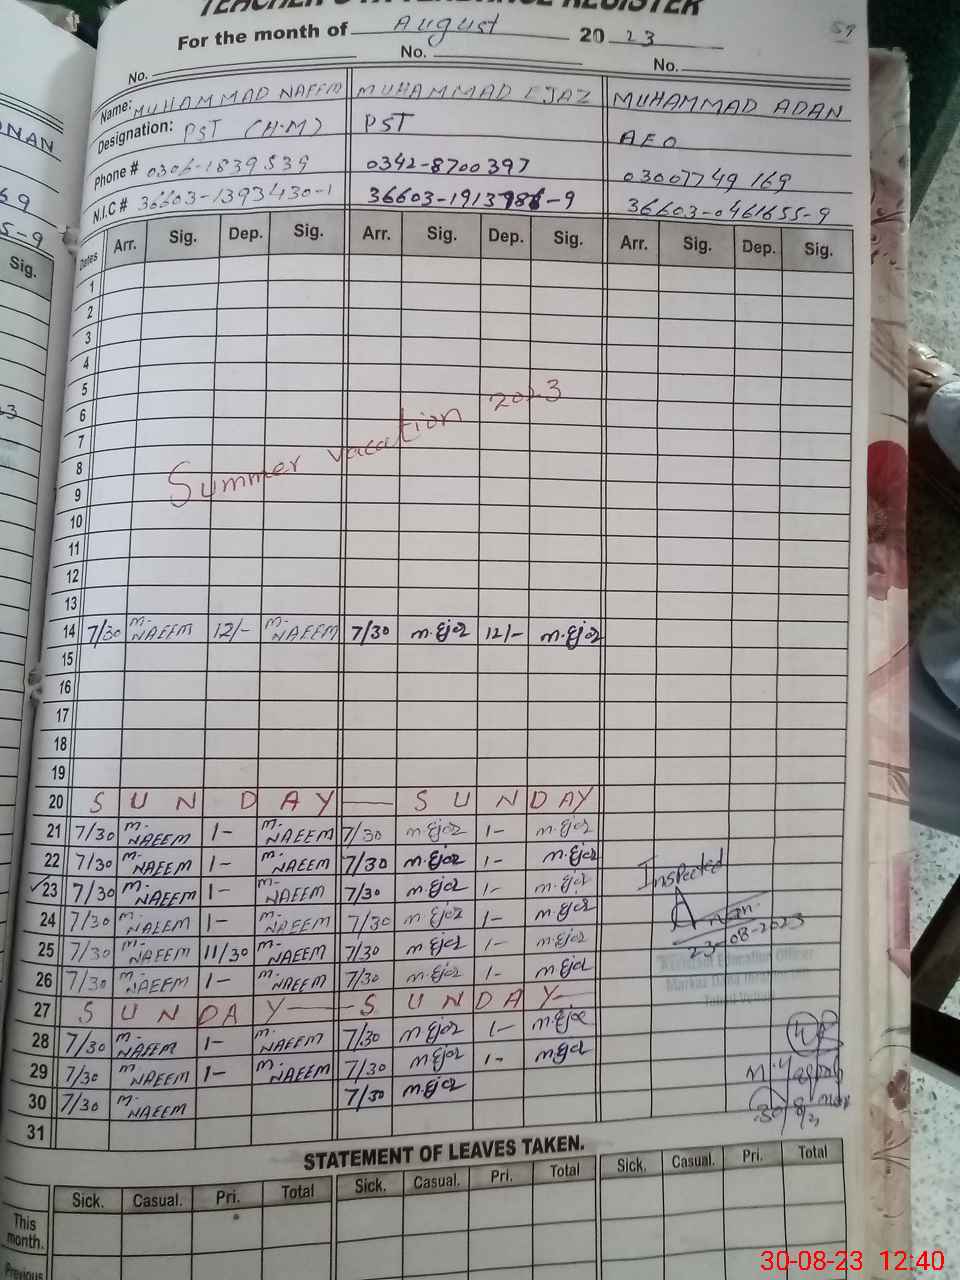 TEACHER'S ATTENDANCE REGISTER
For the month of August 2023
59
No. No. No.
Name: MUHAMMAD NAEEM MUHAMMAD EJAZ MUHAMMAD ADAN
Designation: PST (H.M) PST AEO
Phone # 0306-1839539 0342-8700397 03007749169
N.I.C # 36603-1393430-1 36603-1913986-9 36603-0461655-9
Dates Arr. Sig. Dep. Sig. Arr. Sig. Dep. Sig. Arr. Sig. Dep. Sig.
1
2
3
4
5
6
7
Summer vacation 2023
8
9
10
11
12
13
14 7/30 M. NAEEM 12/- M. NAEEM 7/30 M.Ejaz 12/- M.Ejaz
15
16
17
18
19
20 SUNDAY SUNDAY
21 7/30 M. NAEEM 1- M. NAEEM 7/30 M.Ejaz 1- M.Ejaz
22 7/30 M. NAEEM 1- M. NAEEM 7/30 M.Ejaz 1- M.Ejaz
23 7/30 M. NAEEM 1- M. NAEEM 7/30 M.Ejaz 1- M.Ejaz
Inspected
24 7/30 M. NAEEM 1- M. NAEEM 7/30 M.Ejaz 1- M.Ejaz
23-08-2023
25 7/30 M. NAEEM 11/30 M. NAEEM 7/30 M.Ejaz 1- M.Ejaz
Assistant Education Officer
26 7/30 M. NAEEM 1- M. NAEEM 7/30 M.Ejaz 1- M.Ejaz
27 SUNDAY SUNDAY
28 7/30 M. NAEEM 1- M. NAEEM 7/30 M.Ejaz 1- M.Ejaz
29 7/30 M. NAEEM 1- M. NAEEM 7/30 M.Ejaz 1- M.Ejaz
30 7/30 M. NAEEM 7/30 M.Ejaz
31
STATEMENT OF LEAVES TAKEN.
Sick. Casual. Pri. Total Sick. Casual. Pri. Total Sick. Casual. Pri. Total
This month.
Previous
30-08-23 12:40